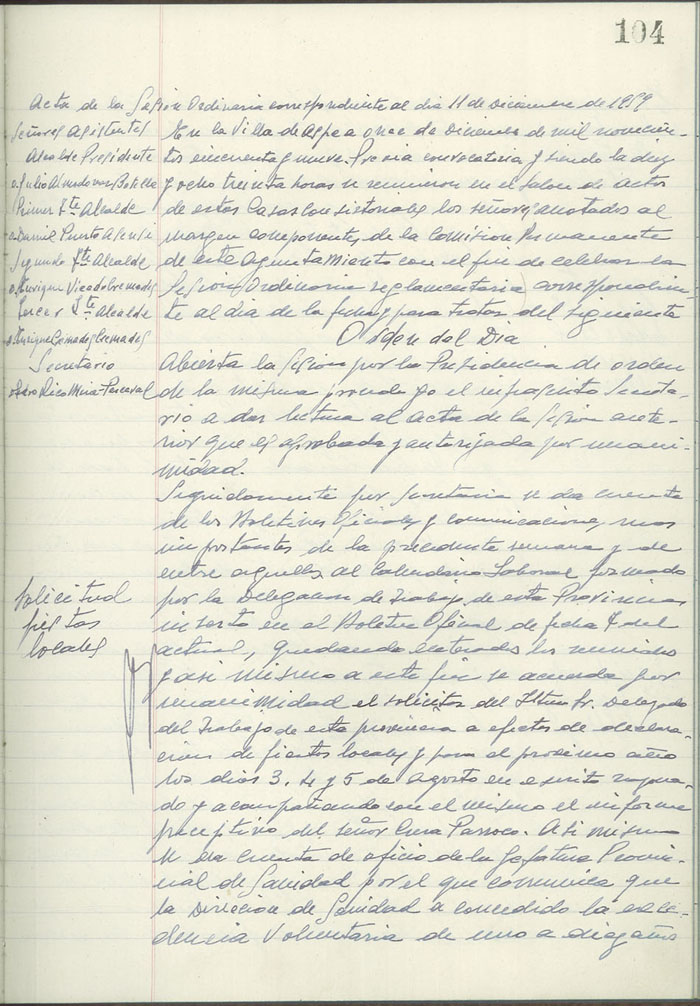 104
Acta de la Sesion Ordinaria correspondiente al dia 11 de Diciembre de 1959
Señores Asistentes
Alcalde Presidente
D. Julio Almodovar Botella
Primer Tte Alcalde
D. Daniel Puerto Asensi
Segundo Tte Alcalde
D. Enrique Vicedo Cremades
Tercer Tte Alcalde
D. Enrique Cremades Cremades
Secretario
Rico Mira-Perceval
En la Villa de Aspe a once de Diciembre de mil novecien-
tos cincuenta y nueve. Previa convocatoria y siendo la diez
y ocho treinta horas se reunieron en el Salon de actos
de estas Casas Consistoriales los señores anotados al
margen componentes de la Comision Permanente
de este Ayuntamiento con el fin de celebrar la
Sesion Ordinaria reglamentaria correspondien-
te al dia de la fecha y para tratar del siguiente
Orden del Dia
Abierta la Sesion por la Presidencia de orden
de la misma procedo yo el infrascrito Secreta-
rio a dar lectura al acta de la Sesion ante-
rior que es aprobada y autorizada por unani-
midad.
Seguidamente por Secretaria se da cuenta
de los Boletines Oficiales y comunicaciones mas
importantes de la precedente semana y de
entre aquellos al Calendario Laboral formado
por la Delegacion de Trabajo de esta Provincia
inserto en el Boletin Oficial de fecha 7 del
Solicitud
fiestas
locales
actual, quedando enterados los reunidos
y asi mismo a este fin se acuerda por
unanimidad el solicitar del Iltmo Sr. Delegado
del Trabajo de esta provincia a efectos de declara-
cion de fiestas locales y para el proximo año
los dias 3, 4 y 5 de Agosto en escrito razona-
do y acompañando con el mismo el informe
preceptivo del señor Cura Parroco. Asi mismo
se da cuenta de oficio de la Jefatura Provin-
cial de Sanidad por el que comunica que
la Direccion de Sanidad a concedido la exce-
dencia Voluntaria de uno a diez años